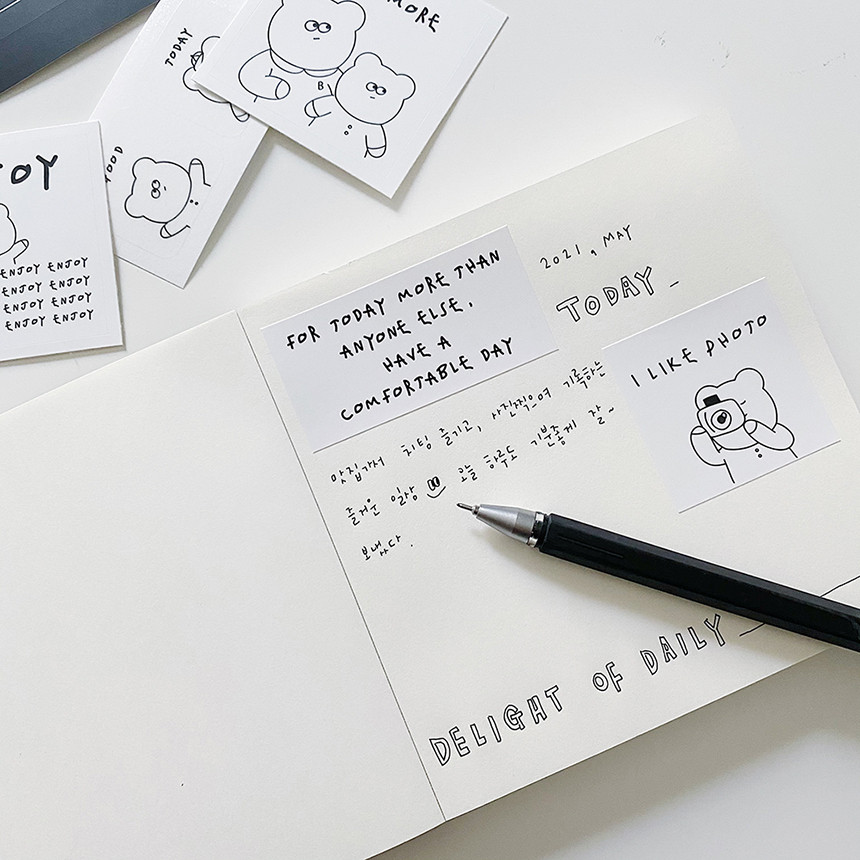 MORE
B
TODAY
FOOD
JOY
ENJOY ENJOY
ENJOY ENJOY
ENJOY ENJOY
ENJOY ENJOY
FOR TODAY MORE THAN
ANYONE ELSE.
HAVE A
COMFORTABLE DAY
2021. MAY
TODAY _
I LIKE PHOTO
맛집가서 치팅 즐기고, 사진찍으며 기록하는
즐거운 일상 오늘 하루도 기분좋게 잘~
보냈다.
DELIGHT OF DAILY